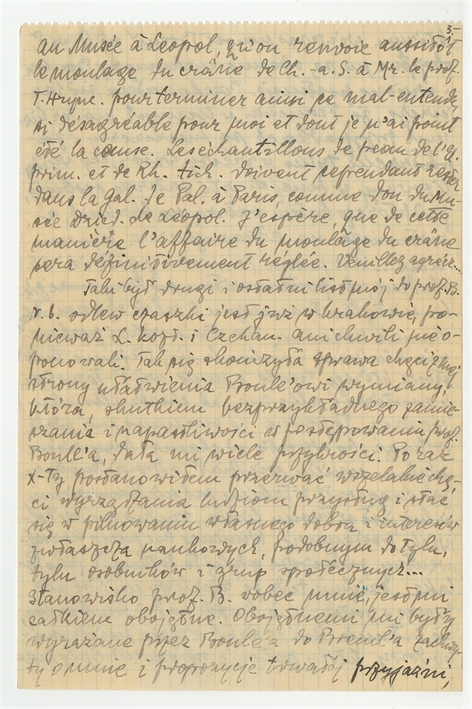 3.
au Musée à Léopol, qu'on renvoie aussitôt
le moulage du crâne de Ch.-a.-S. à Mr. le prof.
T. Hrync. pour terminer ainsi ce mal-entendu
si désagréable pour moi et dont je n'ai point
été la cause. Les échantillons de peau de l'El.
prim. et de Rh. tich. doivent cependant rester
dans la Gal. de Pal. à Paris, comme don du Mu-
sée Dzied. de Léopol. J'espère, que de cette
manière l'affaire du moulâge du crâne
sera définitivement réglée. Veuillez agréer...
Taki był drugi i ostatni list mój do prof. B.
odlew czaszki jest już w Krakowie, po-
nieważ i Czekan. ani chwili nie o-
ponowali. Tak się skończyła sprawa chęci z mej
strony ułatwienia Boule'owi wymiany,
która, skutkiem bezprzykładnego zamie-
szania i napastliwości w postępowaniu prof.
Boule'a, dała mi wiele przykrości. Po raz
x-ty postanowiłem przerwać wszelakie chę-
ci wyrządzania ludziom przysług i stać
się w pilnowaniu własnego dobra i interesów
zwłaszcza naukowych, podobnym do tylu,
tylu osobników i grup społecznych...
Stanowisko prof. B. wobec mnie, jest mi
całkiem obojętne. Obojętnemi mi były
wyrażane przez Boule'a do Breuil'a
o mnie i propozycje trwałej przyjaźni,